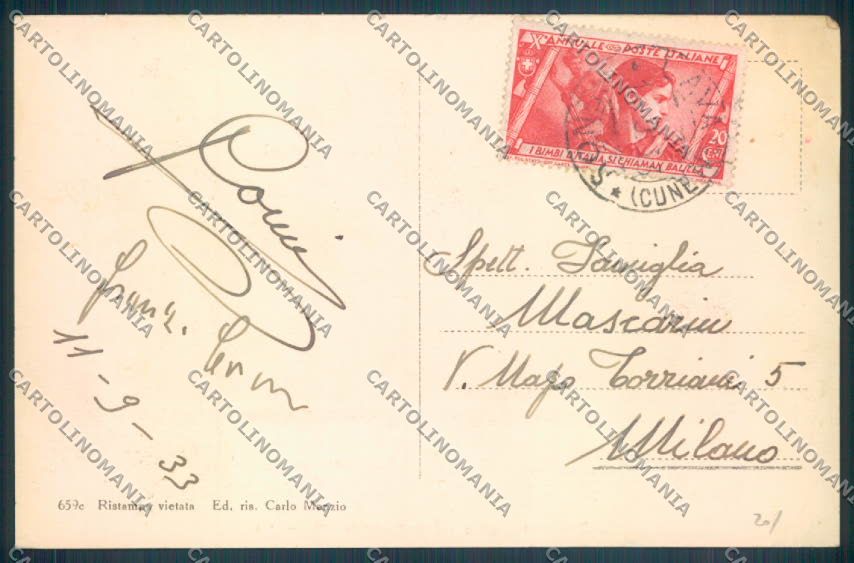 Xº ANNUALE POSTE ITALIANE
20
CENT
I BIMBI D'ITALIA SI CHIAMAN BALILLA
(CUNEO)
Spett. Famiglia
Mascarin
V. Napo Torriani 5
Milano
11-9-33
659c Ristampa vietata Ed. ris. Carlo Marzio
20/
CARTOLINOMANIA